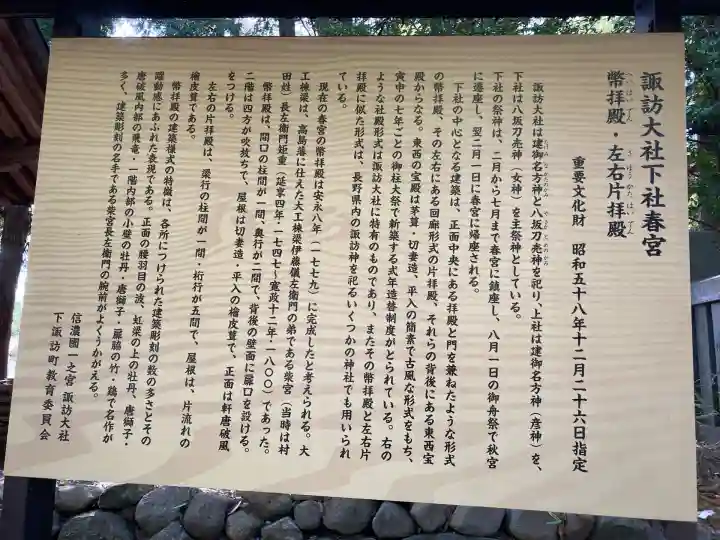 諏訪大社下社春宮
幣拝殿・左右片拝殿
へいはいでん
さゆうかたはいでん
重要文化財　昭和五十八年十二月二十六日指定
諏訪大社は建御名方神と八坂刀売神を祀り、上社は建御名方神（彦神）を、
下社は八坂刀売神（女神）を主祭神としている。
下社の祭神は、二月から七月まで春宮に鎮座し、八月一日の御舟祭で秋宮
に遷座し、翌二月一日に春宮に帰座される。
下社の中心となる建築は、正面中央にある拝殿と門を兼ねたような形式
の幣拝殿、その左右にある回廊形式の片拝殿、それらの背後にある東西宝
殿からなる。東西の宝殿は茅葺・切妻造、平入の簡素で古風な形式をもち、
寅申の七年ごとの御柱大祭で新築する式年造替制度がとられている。右の
ような社殿形式は諏訪大社に特有のものであり、またその幣拝殿と左右片
拝殿に似た形式は、長野県内の諏訪神を祀るいくつかの神社でも用いられ
ている。
現在の春宮の幣拝殿は安永八年（一七七九）に完成したと考えられる。大
工棟梁は、高島藩に仕えた大工棟梁伊藤儀左衛門の弟である柴宮（当時は村
田姓）長左衛門矩重（延享四年・一七四七～寛政十二年・一八〇〇）であった。
幣拝殿は、間口の柱間が一間、奥行が二間で、背後の壁面に扉口を設ける。
二階は四方が吹放ちで、屋根は切妻造・平入の檜皮葺で、正面は軒唐破風
をつける。
左右の片拝殿は、梁行の柱間が一間・桁行が五間で、屋根は、片流れの
檜皮葺である。
幣拝殿の建築様式の特徴は、各所につけられた建築彫刻の数の多さとその
躍動感にあふれた表現である。正面の腰羽目の波、虹梁の上の牡丹、唐獅子・
唐破風内部の飛竜・一階内部の小壁の牡丹・唐獅子・扉脇の竹・鶏で名作が
多く、建築彫刻の名手である柴宮長左衛門の腕前がよくうかがえる。
信濃國一之宮　諏訪大社
下諏訪町教育委員会